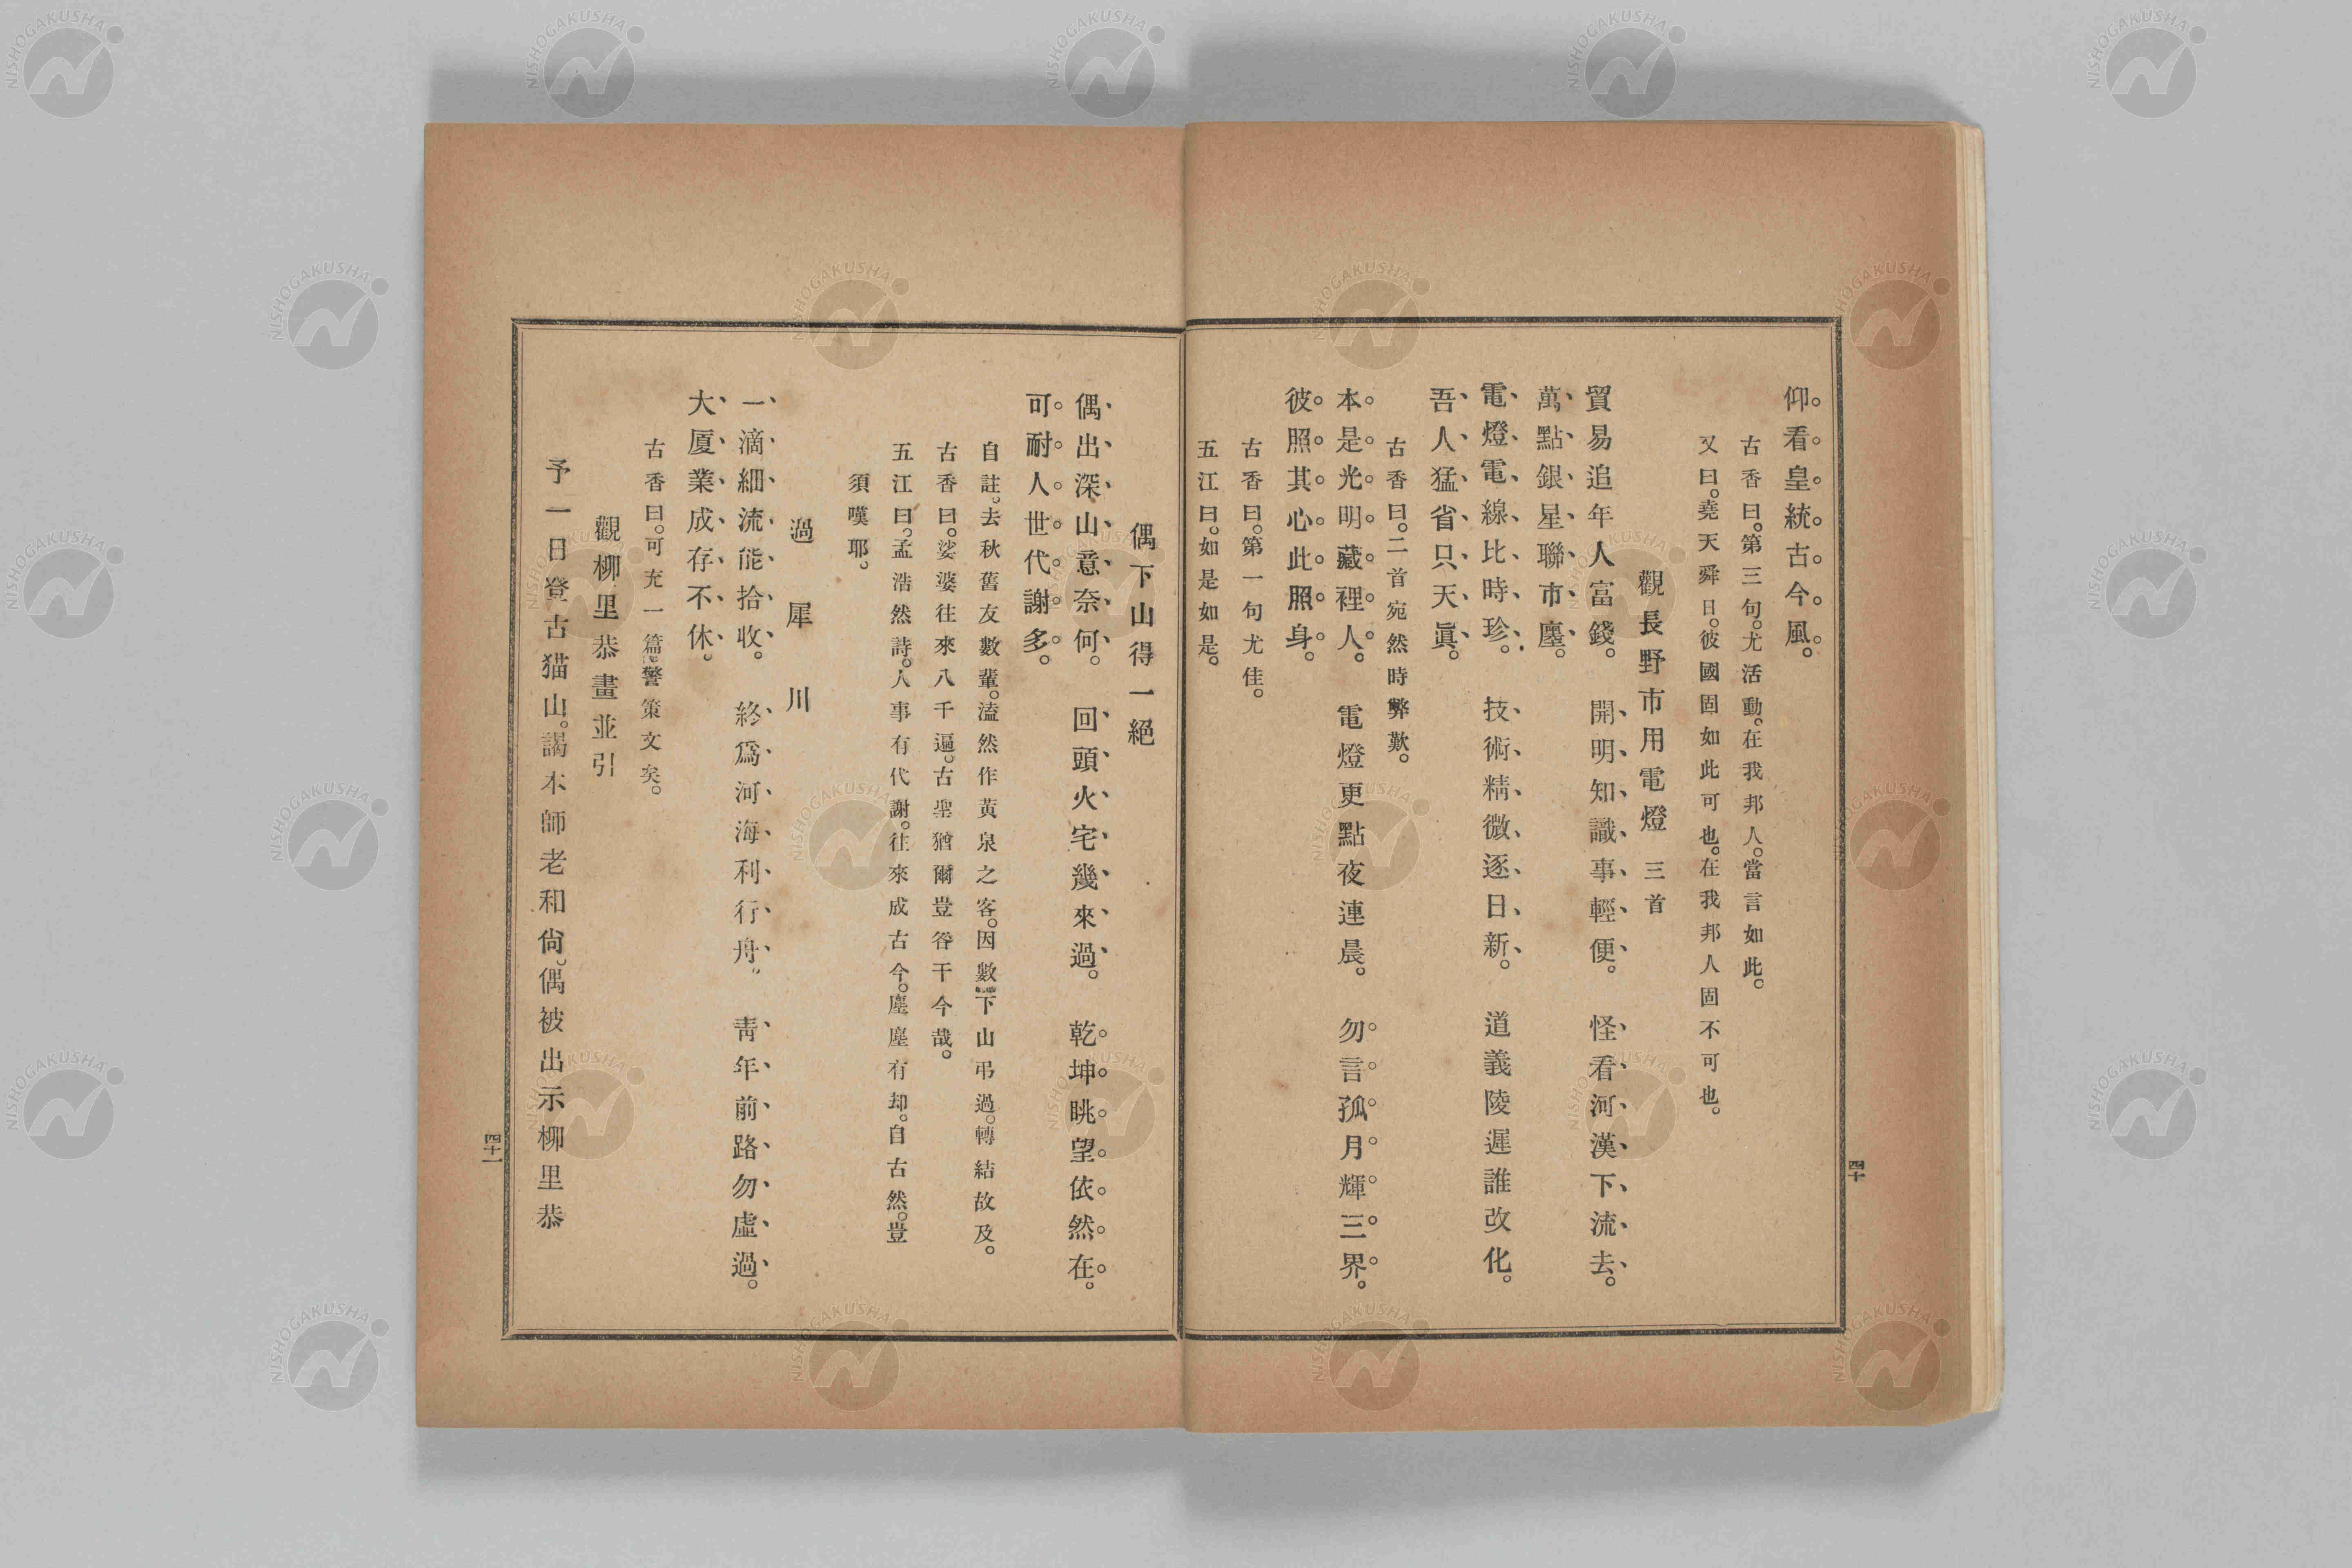 仰看皇統古今風。
古香曰。第三句。尤活動。在我邦人。當言如此。
又曰。堯天舜日。彼國固如此可也。在我邦人固不可也。
觀長野市用電燈 三首
貿易追年人富錢。 開明知識事輕便。 怪看河漢下流去。
萬點銀星聯市廛。
電燈電線比時珍。 技術精微逐日新。 道義陵遲誰改化。
吾人猛省只天眞。
古香曰。二首宛然時弊歎。
本是光明藏裡人。 電燈更點夜連晨。 勿言孤月輝三界。
彼照其心此照身。
古香曰。第一句尤佳。
五江曰。如是如是。
四十
偶下山得一絕
偶出深山意奈何。 回頭火宅幾來過。 乾坤眺望依然在。
可耐人世代謝多。
自註。去秋舊友數輩。溘然作黃泉之客。因數下山弔過。轉結故及。
古香曰。娑婆往來八千遍。古聖猶爾豈咎干今哉。
五江曰。孟浩然詩。人事有代謝。往來成古今。塵塵有却。自古然。豈
須嘆耶。
過犀川
一滴細流能拾收。 終爲河海利行舟。 靑年前路勿虛過。
大厦業成存不休。
古香曰。可充一篇警策文矣。
觀柳里恭畫並引
予一日登古猫山。謁本師老和尙。偶被出示柳里恭
四十一
NISHOGAKUSHA